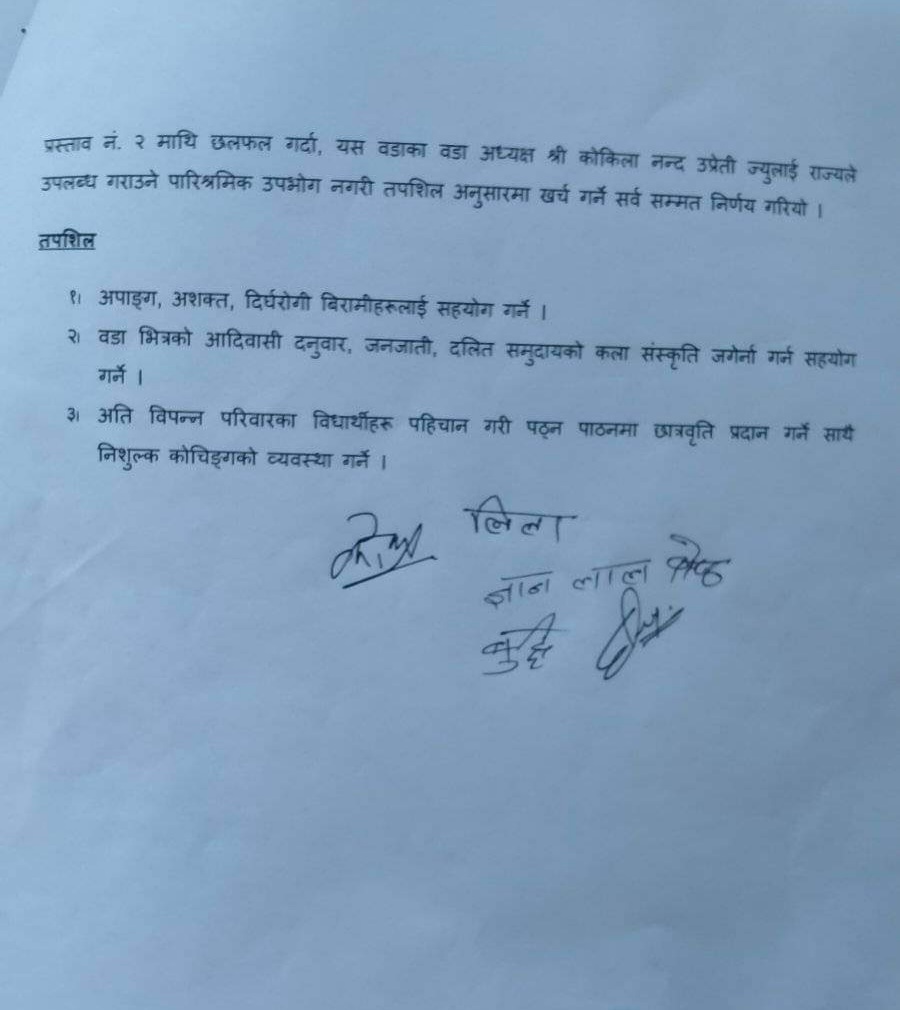 प्रस्ताव नं. २ माथि छलफल गर्दा, यस वडाका वडा अध्यक्ष श्री कोकिला नन्द उप्रेती ज्युलाई राज्यले
उपलब्ध गराउने पारिश्रमिक उपभोग नगरी तपशिल अनुसारमा खर्च गर्ने सर्व सम्मत निर्णय गरियो ।
तपशिल
१। अपाङ्ग, अशक्त, दिर्घरोगी बिरामीहरूलाई सहयोग गर्ने ।
२। वडा भित्रको आदिवासी दनुवार, जनजाती, दलित समुदायको कला संस्कृति जगेर्ना गर्न सहयोग
गर्ने ।
३। अति विपन्न परिवारका विधार्थीहरू पहिचान गरी पठ्न पाठनमा छात्रवृति प्रदान गर्ने साथै
निशुल्क कोचिङ्गको व्यवस्था गर्ने ।
लिला
ज्ञान लाल